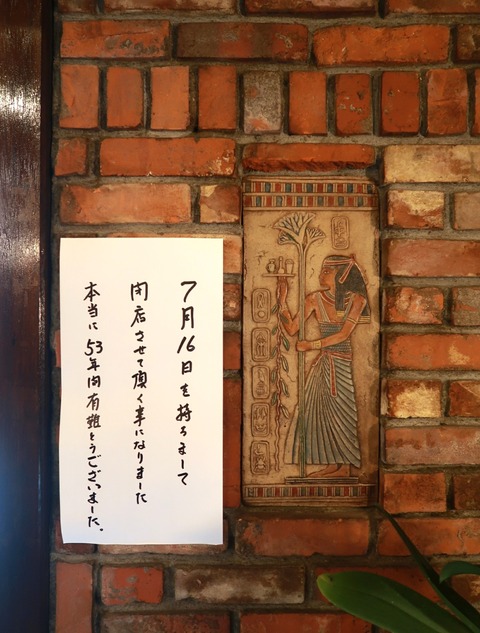 7月16日を持ちまして
閉店させて頂く事になりました
本当に53年間有難とうございました。